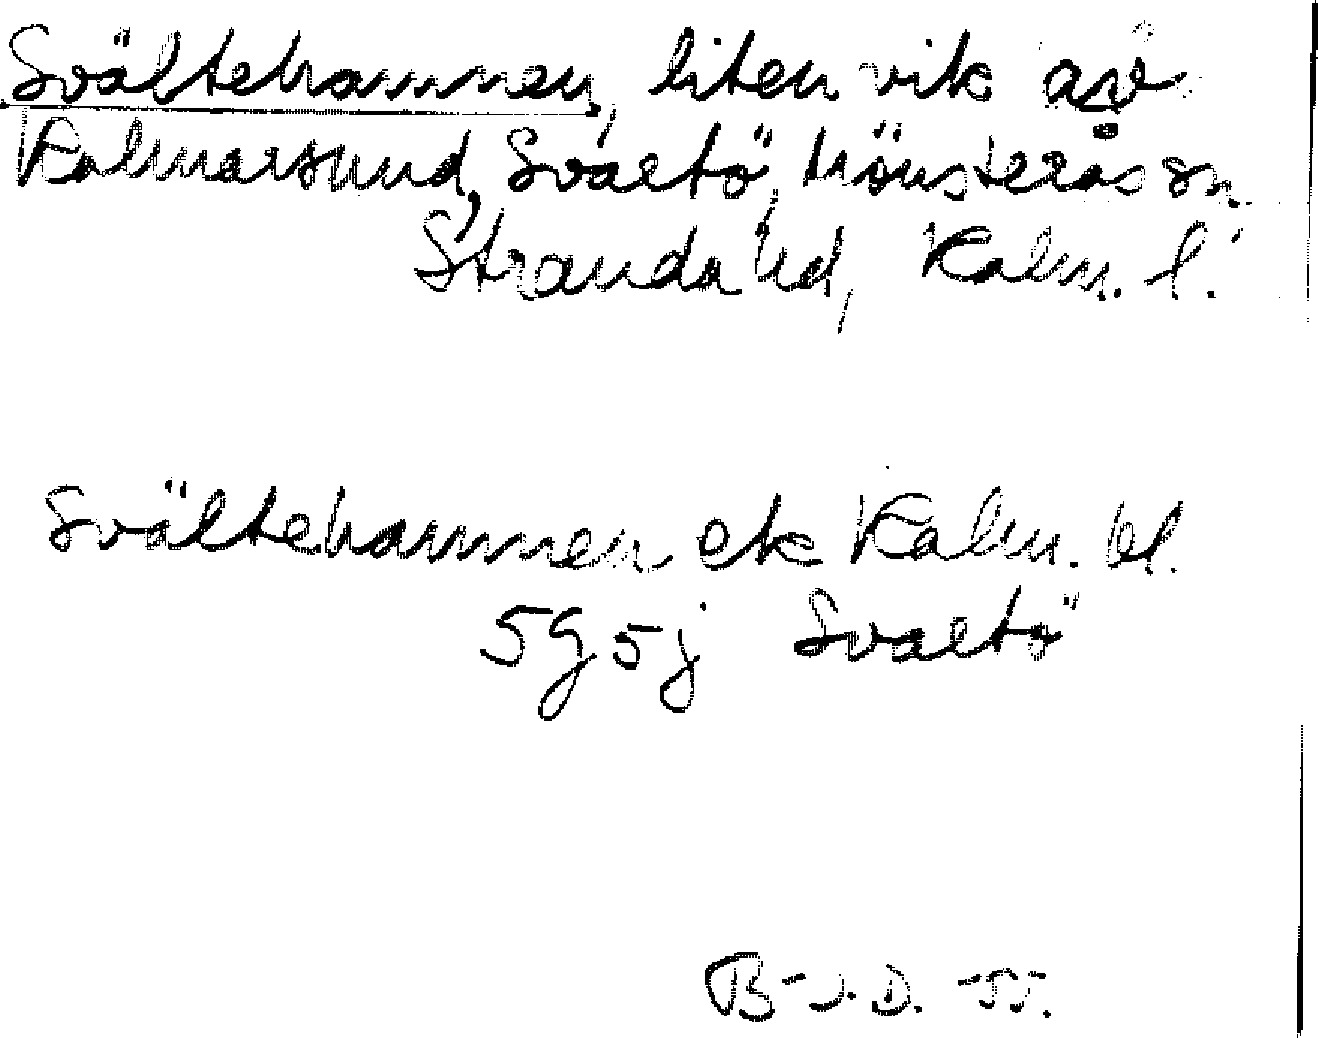 Svältehamnen, liten vik av
Kalmarsund, Svartö, Mönsterås sn.
Stranda hd, Kalm. l.
Svältehamnen ek Kalm. bl.
5g5j Svartö
B-J.D. -55.